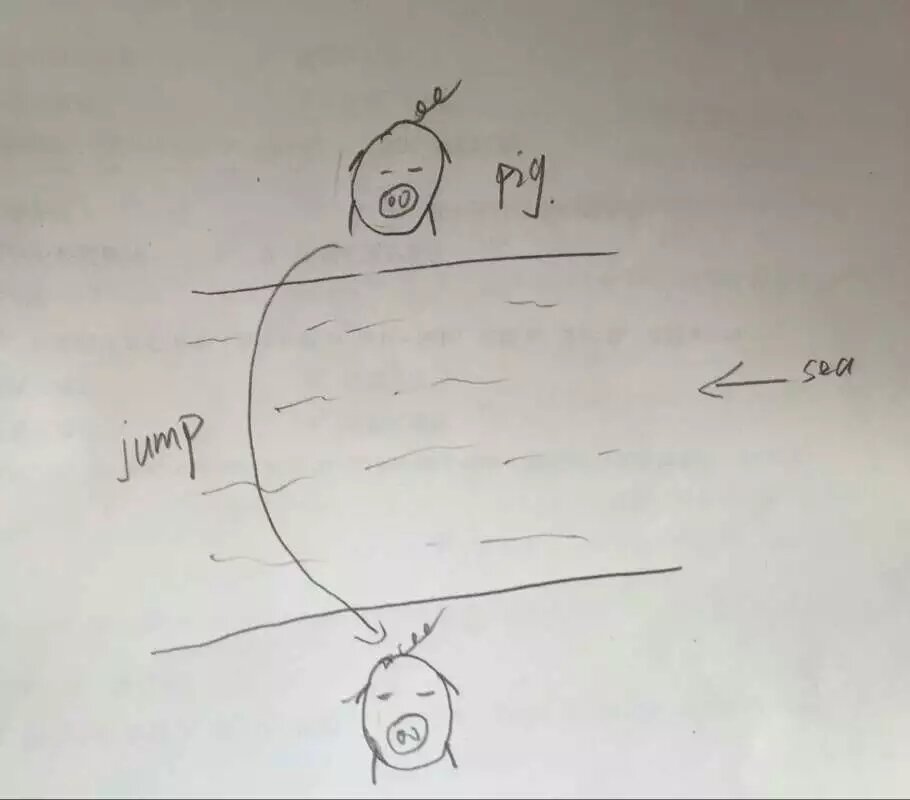 pig.
sea
jump